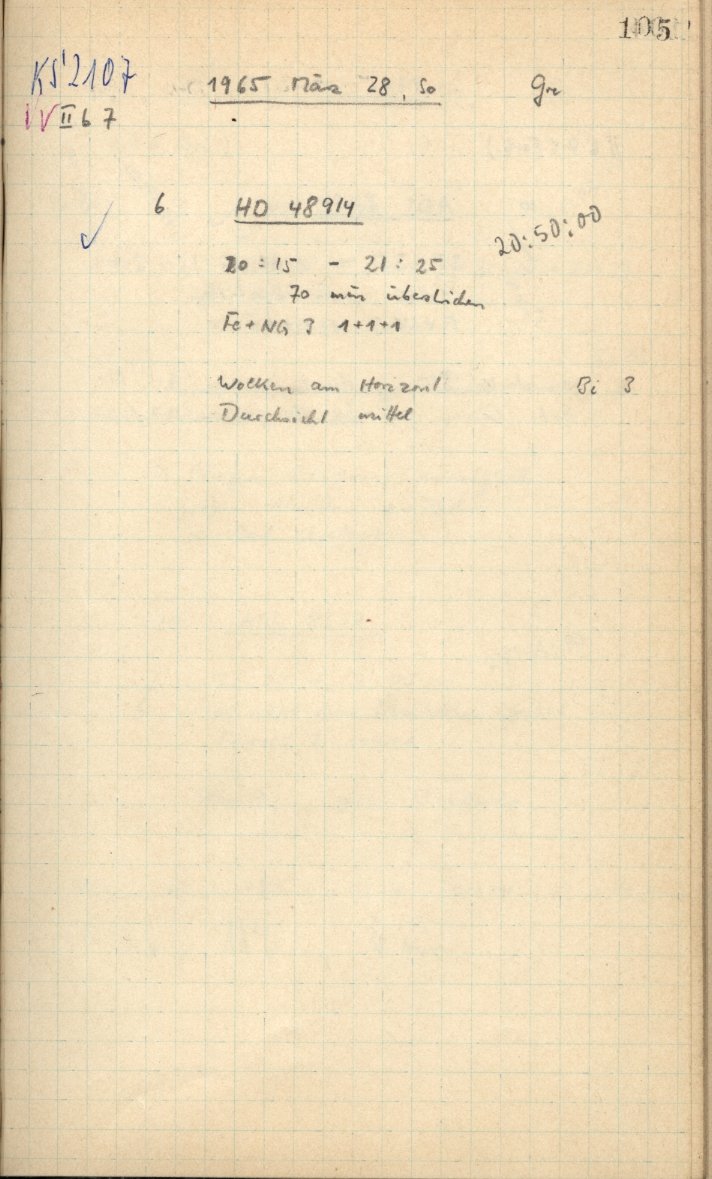 105
KS 2107
1965 März 28, So Gr
VV II b 7
6 HD 48914
20:50:00
20:15 - 21:25
70 min überstrichen
Fe + NG 3 1+1+1
Wolken am Horizont Bi 3
Durchsicht mittel